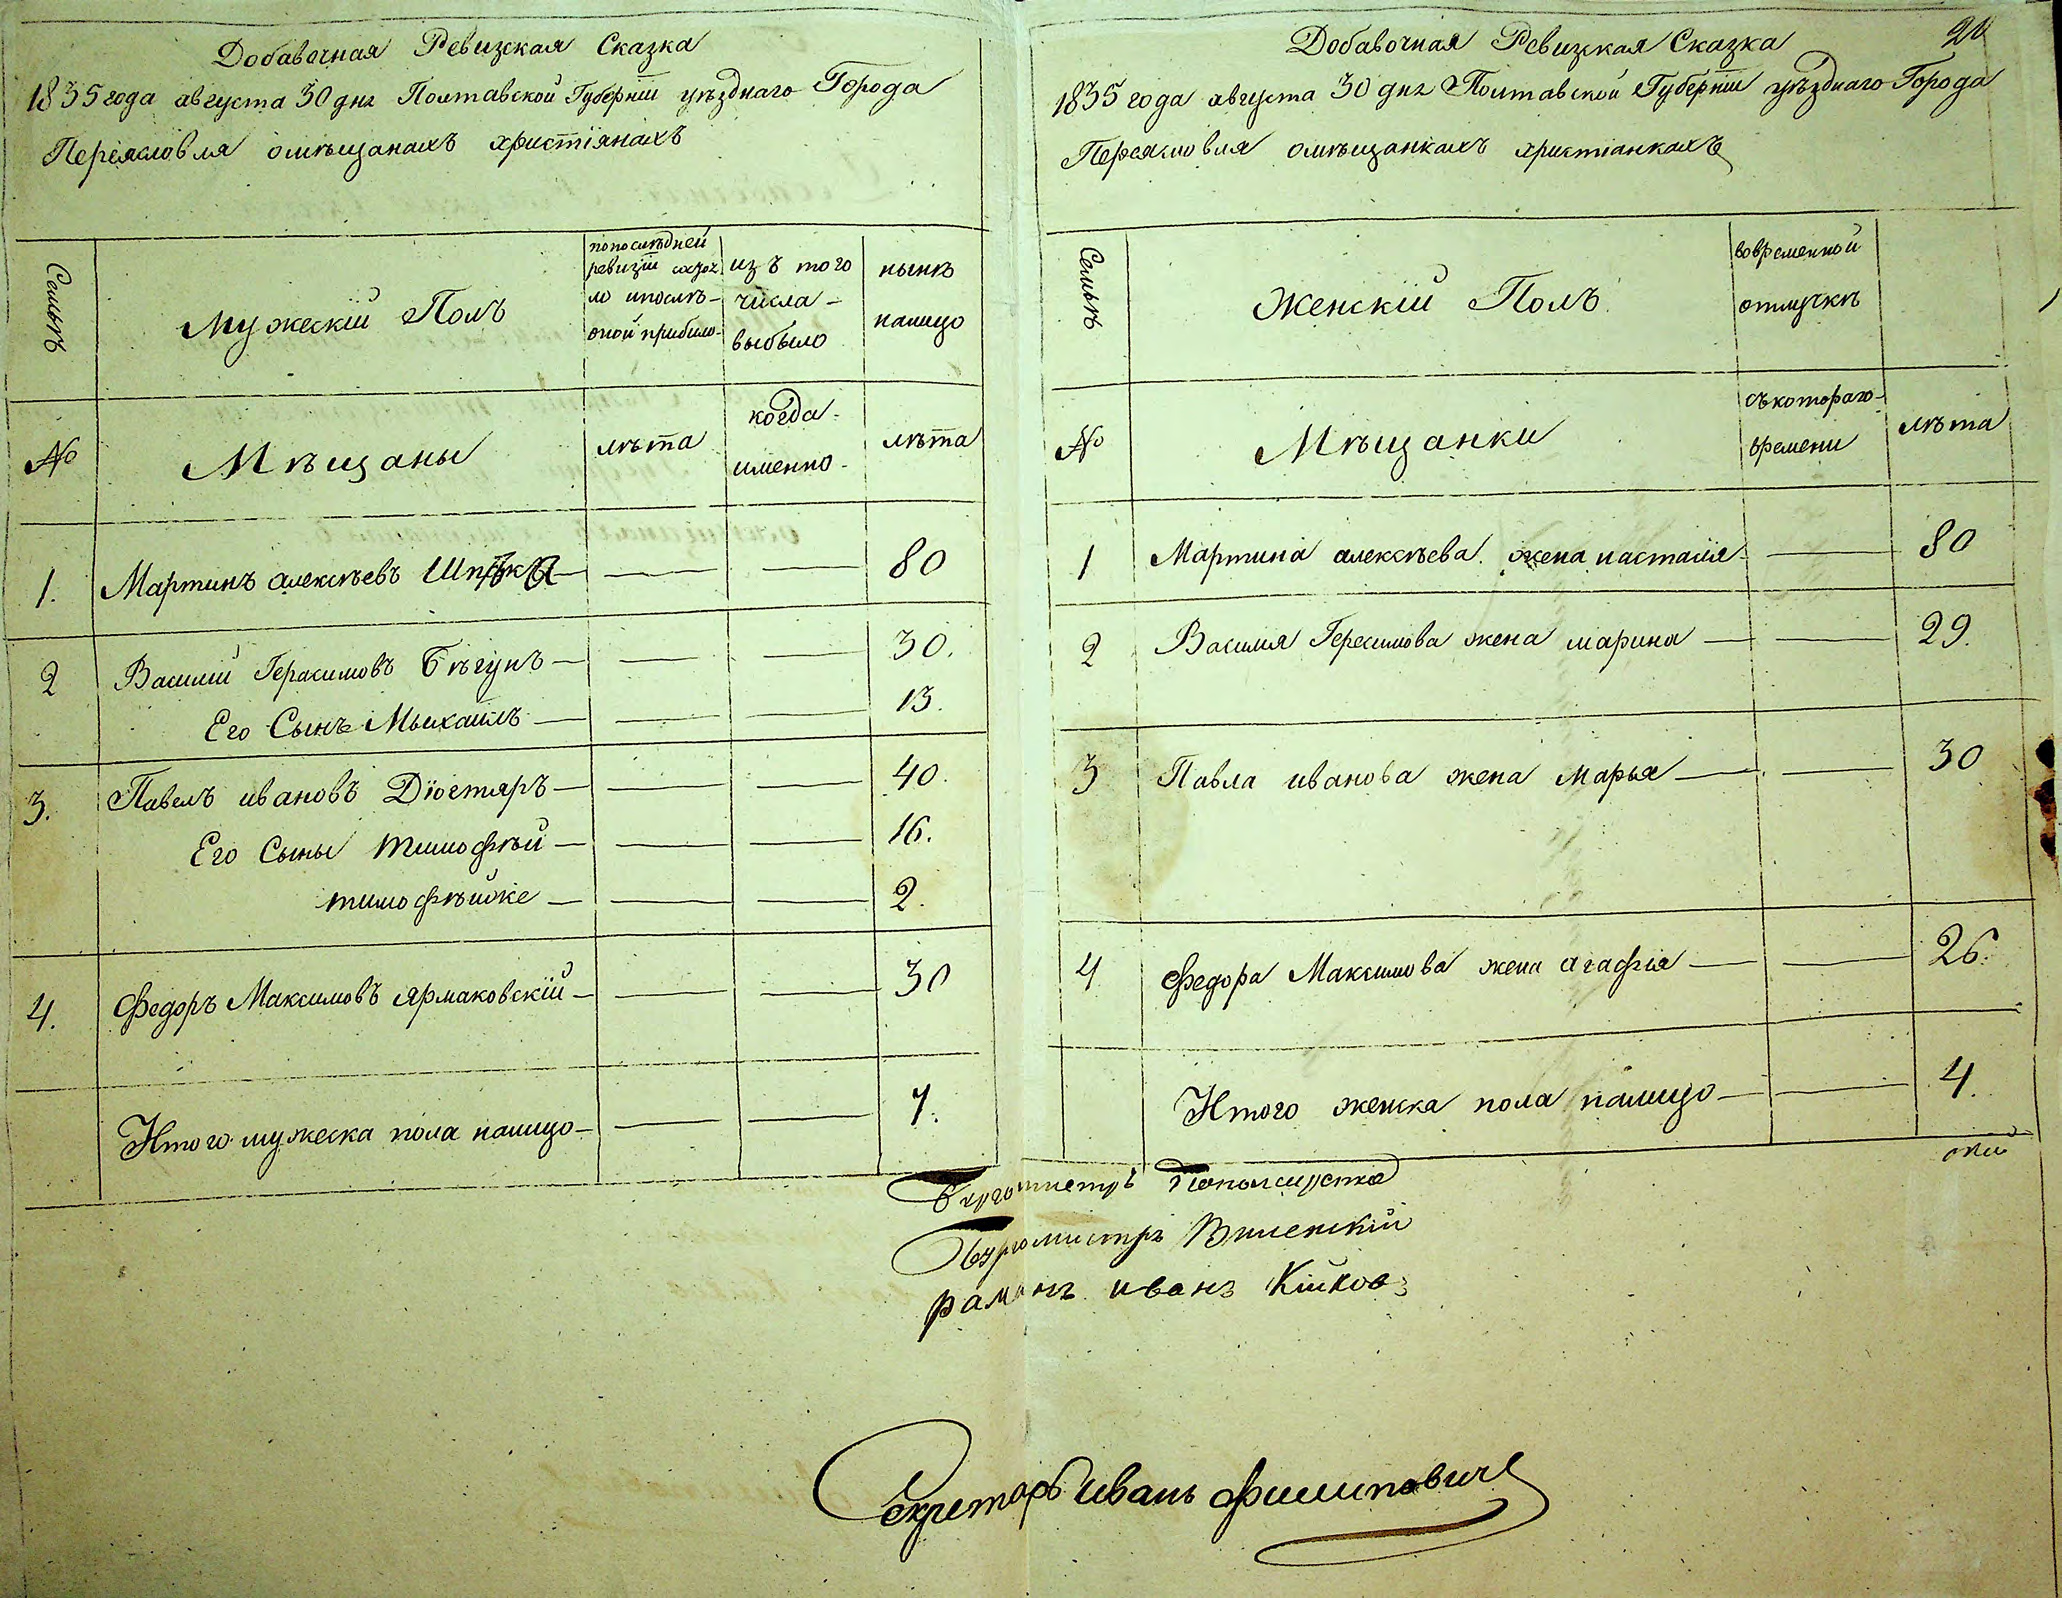 Добавочная Ревизская Сказка
1835 года августа 30 дня Полтавской Губерніи уѣзднаго Города
Переясловля омѣщанахъ христіянахъ
Семьѣ
Мужескій Полъ
попослѣдней
ревизіи состоя
ло ипослѣ-
оной прибыло
изъ того
числа-
выбыло
нынѣ
налицо
№
Мѣщаны
лѣта
когда
именно
лѣта
1. Мартинъ алексѣевъ — — 80
2 Василій Герасимовъ Бѣгунъ — — 30.
Его Сынъ Мыхаилъ — — 13.
3. Павелъ ивановъ — — 40.
Его Сыны тимофѣй — — 16.
тимофѣйже — — 2.
4. Федоръ Максимовъ ярмаковскій — — 30
Итого мужеска пола налицо — — 7.
20
Добавочная Ревизская Сказка
1835 года августа 30 дня Полтавской Губерніи уѣзднаго Города
Переясловля омѣщанкахъ христіанкахъ
Семьѣ
Женскій Полъ
вовременной
отлучкѣ
№
Мѣщанки
съкотораго
времени
лѣта
1 Мартина алексѣева жена настасия — 80
2 Василия Герасимова жена марина — 29.
3 Павла иванова жена марья — 30
4 Федора Максимова жена агафія — 26.
Итого женска пола налицо — 4.
Бургомистръ
Бургомистръ Виленскій
иванъ
Секретарь иванъ Филиповичъ